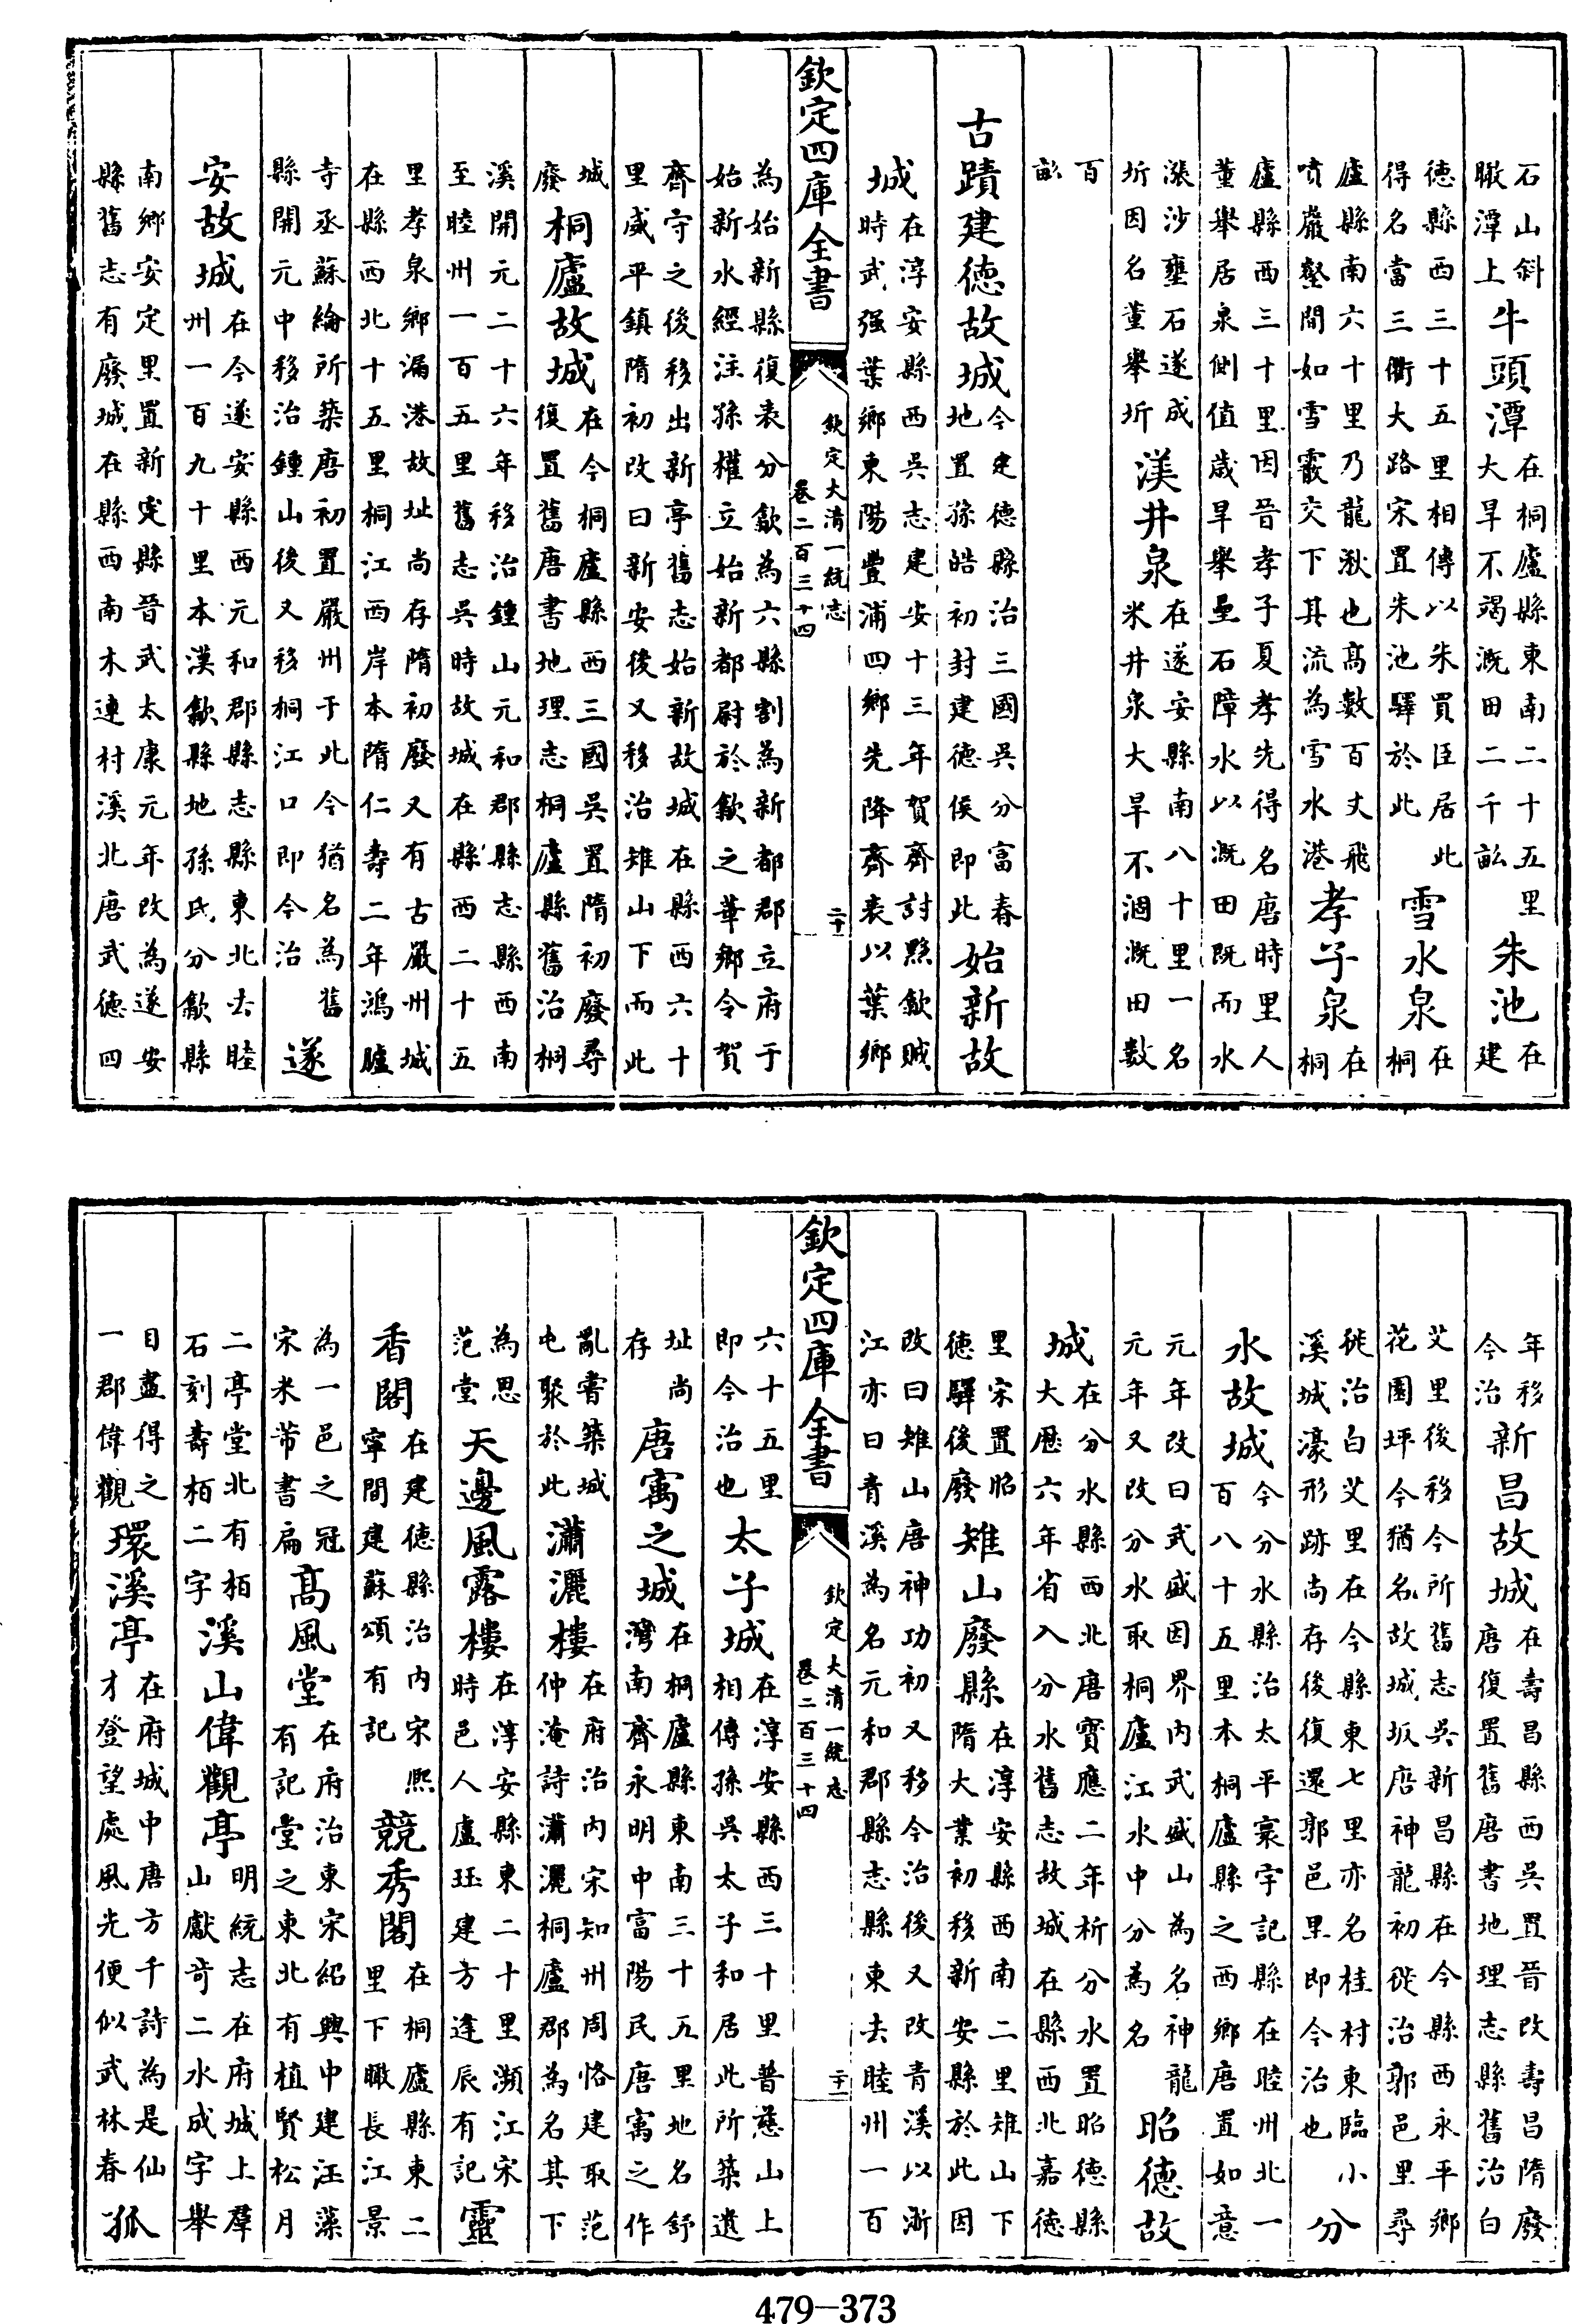 石山斜瞰潭上牛頭潭在桐廬縣東南二十五里大旱不竭溉田二千畝朱池在建
德縣西三十五里相傳以朱買臣居此得名當三衢大路宋置朱池驛於此雪水泉在桐
廬縣南六十里乃龍湫也髙數百丈飛噴巖壑間如雪霰交下其流為雪水港孝子泉在桐
廬縣西三十里因晉孝子夏孝先得名唐時里人董舉居泉側值歲旱舉壘石障水以溉田既而水
漲沙壅石遂成圻因名董舉圻渼井泉在遂安縣南八十里一名米井泉大旱不涸溉田數
百畝
古蹟建德故城今建德縣治三國吳分富春地置孫皓初封建德侯即此始新故
城在淳安縣西吳志建安十三年賀齊討黟歙賊時武强葉鄉東陽豐浦四鄉先降齊表以葉鄉
欽定四庫全書 欽定大清一統志 卷二百三十四 二十
為始新縣復表分歙為六縣割為新都郡立府于始新水經注孫權立始新都尉於歙之華鄉令賀
齊守之後移出新亭舊志始新故城在縣西六十里威平鎮隋初改曰新安後又移治雉山下而此
城廢桐廬故城在今桐廬縣西三國吳置隋初廢尋復置舊唐書地理志桐廬縣舊治桐
溪開元二十六年移治鍾山元和郡縣志縣西南至睦州一百五里舊志吳時故城在縣西二十五
里孝泉鄉漏港故址尚存隋初廢又有古嚴州城在縣西北十五里桐江西岸本隋仁壽二年鴻臚
寺丞蘇綸所築唐初置嚴州于此今猶名為舊縣開元中移治鍾山後又移桐江口即今治遂
安故城在今遂安縣西元和郡縣志縣東北去睦州一百九十里本漢歙縣地孫氏分歙縣
南鄉安定里置新定縣晉武太康元年改為遂安縣舊志有廢城在縣西南木連村溪北唐武德四
年移今治新昌故城在壽昌縣西吳置晉改壽昌隋廢唐復置舊唐書地理志縣舊治白
艾里後移今所舊志吳新昌縣在今縣西永平鄉花園坪今猶名故城坂唐神龍初徙治郭邑里尋
徙治白艾里在今縣東七里亦名桂村東臨小溪城濠形跡尚存後復還郭邑里即今治也分
水故城今分水縣治太平寰宇記縣在睦州北一百八十五里本桐廬縣之西鄉唐置如意
元年改曰武盛因界內武盛山為名神龍元年又改分水取桐廬江水中分為名昭德故
城在分水縣西北唐寶應二年析分水置昭德縣大厯六年省入分水舊志故城在縣西北嘉德
里宋置昭德驛後廢雉山廢縣在淳安縣西南二里雉山下隋大業初移新安縣於此因
改曰雉山唐神功初又移今治後又改青溪以浙江亦曰青溪為名元和郡縣志縣東去睦州一百
欽定四庫全書 欽定大清一統志 卷二百三十四 二十一
六十五里即今治也太子城在淳安縣西三十里普慈山上相傳孫吳太子和居此所築遺
址尚存唐寓之城在桐廬縣東南三十五里地名舒灣南齊永明中富陽民唐寓之作
亂嘗築城屯聚於此瀟灑樓在府治內宋知州周恪建取范仲淹詩瀟灑桐廬郡為名其下
為思范堂天邊風露樓在淳安縣東二十里瀕江宋時邑人盧珏建方逢辰有記靈
香閣在建德縣治內宋熙寧間建蘇頌有記競秀閣在桐廬縣東二里下瞰長江景
為一邑之冠宋米芾書扁髙風堂在府治東宋紹興中建汪藻有記堂之東北有植賢松月
二亭堂北有栢石刻壽栢二字溪山偉觀亭明統志在府城上羣山獻奇二水成字舉
目盡得之一郡偉觀環溪亭在府城中唐方千詩為是仙才登望處風光便似武林春孤
479-373